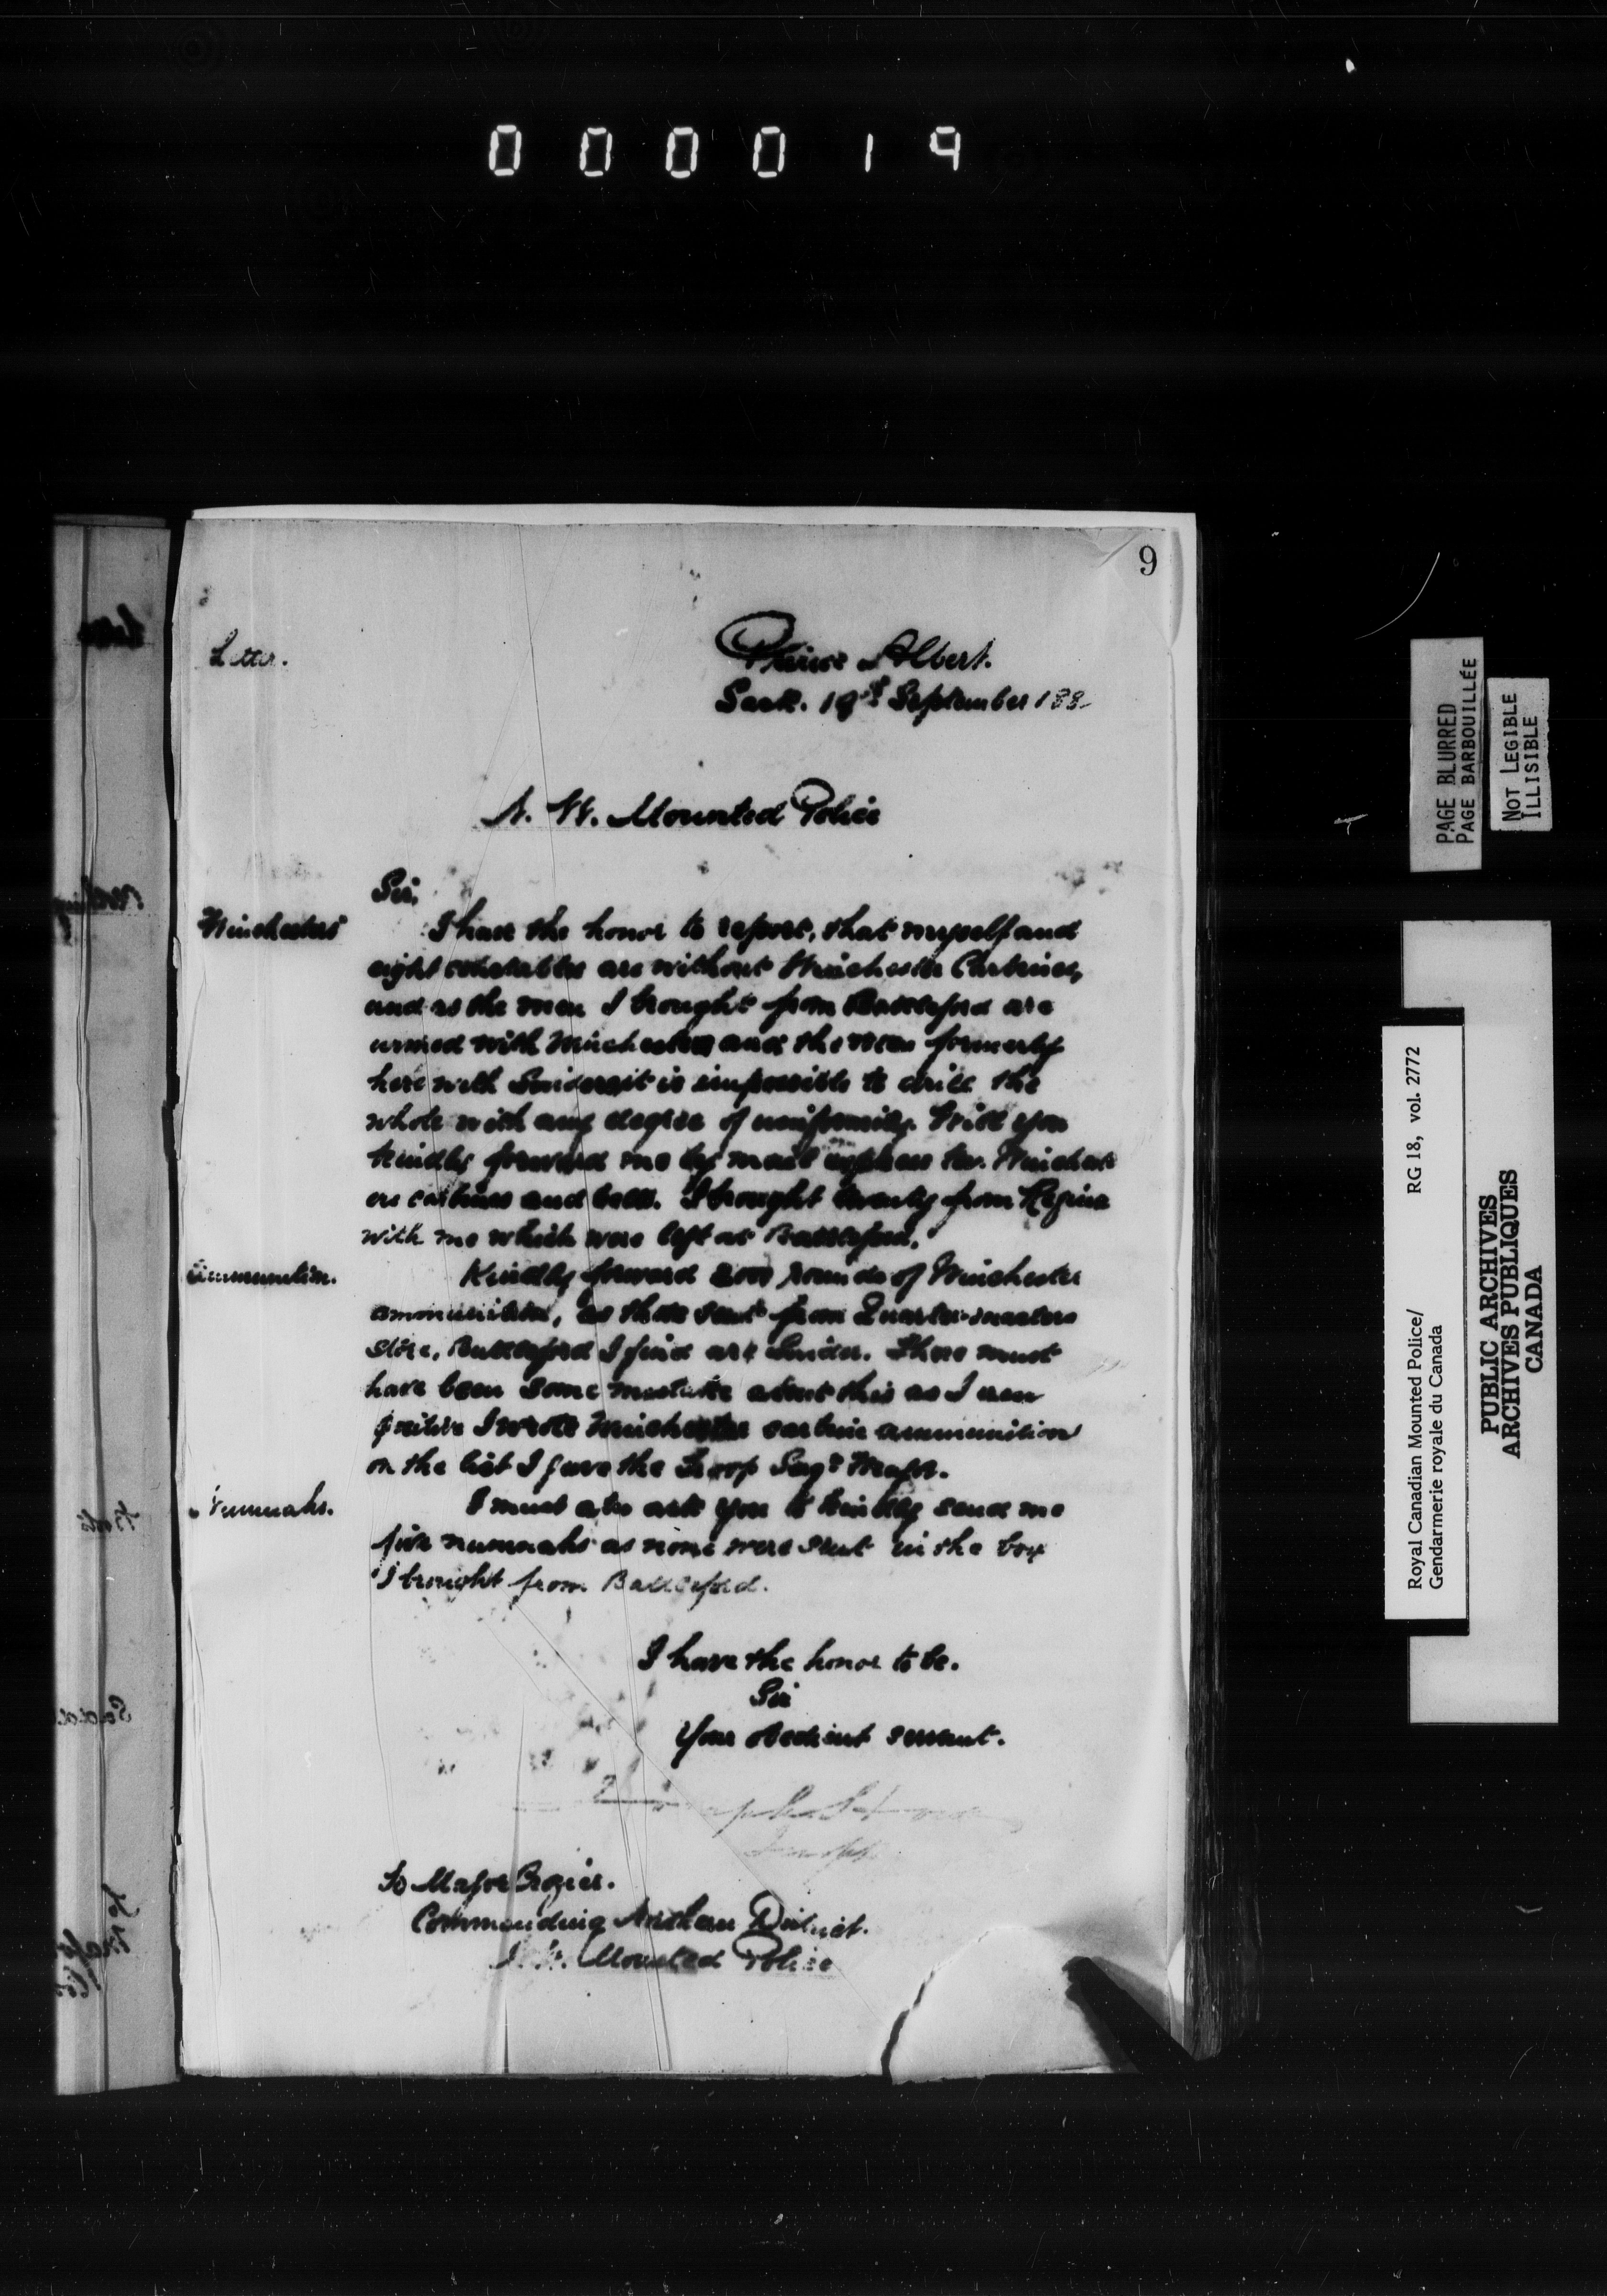 000019
9
Letter.
Prince Albert.
Sask. 19th September 188
N. W. Mounted Police
Sir,
Winchesters
I have the honor to report, that myself and
eight constables are without Winchester Carbines,
and as the men I brought from Battleford are
armed with Winchesters and the men formerly
here with Sniders it is impossible to drill the
whole with any degree of uniformity. Will you
kindly forward me by mail express ten Winchest
er carbines and belts. I brought twenty from Regina
with me which were left at Battleford.
Ammunition.
Kindly forward 2000 rounds of Winchester
ammunition, as that sent from Quarter-masters
store, Battleford I find are Snider. There must
have been some mistake about this as I am
positive I wrote Winchester carbine ammunition
on the list I gave the Troop Sergt Major.
Numnahs.
I must also ask you to kindly send me
five numnahs as none were sent in the box
I brought from Battleford.
I have the honor to be.
Sir
Your obedient servant.
To Major Crozier.
Commanding Northern District.
N. W. Mounted Police
PAGE BLURRED
PAGE BARBOUILLÉE
NOT LEGIBLE
ILLISIBLE
Royal Canadian Mounted Police/ RG 18, vol. 2772
Gendarmerie royale du Canada
PUBLIC ARCHIVES
ARCHIVES PUBLIQUES
CANADA